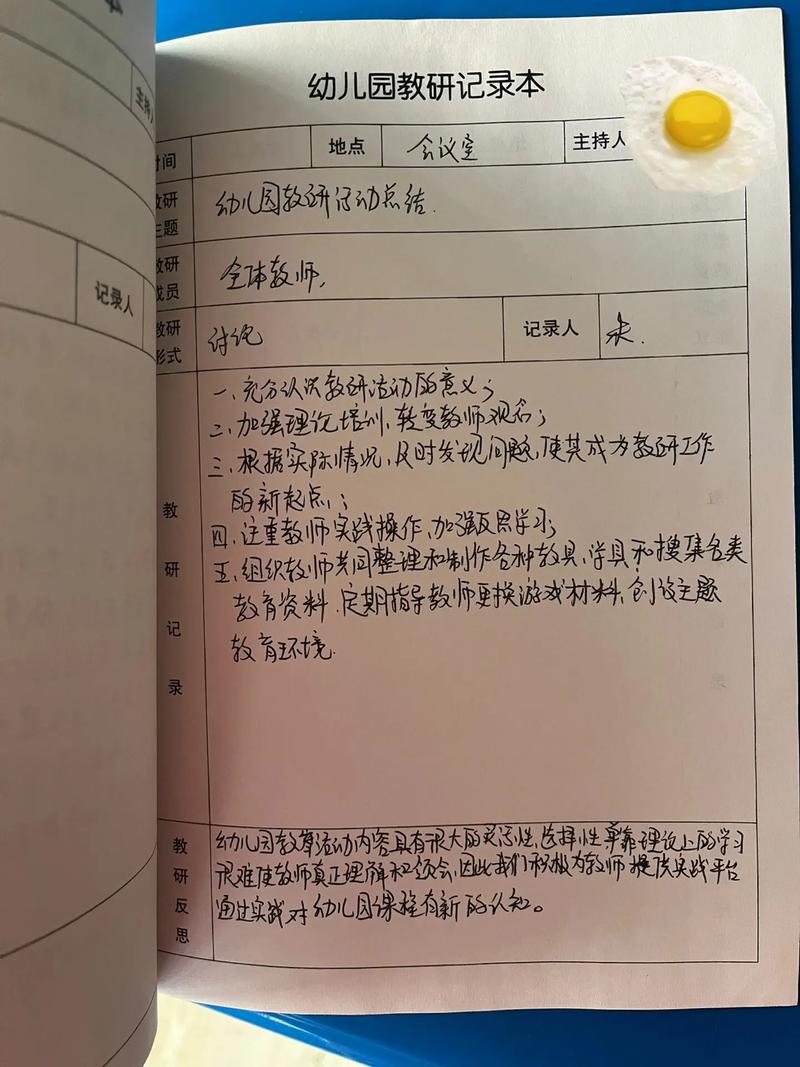 幼儿园教研记录本
时间 地点 会议室 主持人
教研主题 幼儿园教研活动总结.
教研成员 全体教师,
教研形式 讨论 记录人
教研记录
一、充分认识教研活动的意义;
二、加强理论培训、转变教师观念;
三、根据实际情况,及时发现问题,使其成为教研工作
的新起点,;
四、注重教师实践操作、加强反思学习;
五、组织教师共同整理和制作各种教具、学具和搜集各类
教育资料.定期指导教师更换游戏材料、创设主题
教育环境.
教研反思
幼儿园教育活动内容具有很大的灵活性,选择性单靠理论上的学习
很难使教师真正理解和领会,因此我们积极为教师提供实践平台
通过实践对幼儿园课程有新的认知。
主持人
记录人